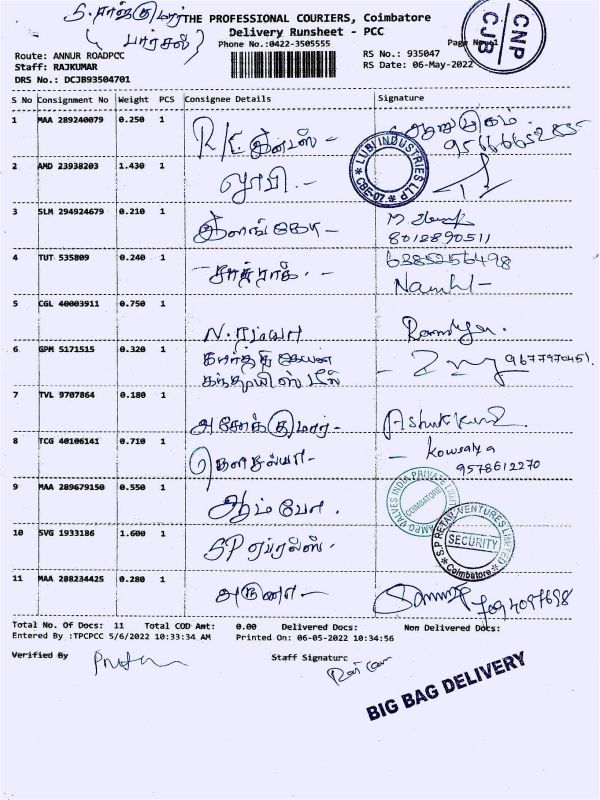 S. ராஜ்குமார்
(பார்சல்)
THE PROFESSIONAL COURIERS, Coimbatore
Delivery Runsheet - PCC
Phone No.:0422-3505555
CNP
CJB
Route: ANNUR ROADPCC
Staff: RAJKUMAR
DRS No.: DCJB93504701
RS No.: 935047
RS Date: 06-May-2022
S No Consignment No Weight PCS Consignee Details Signature
1 MAA 289240079 0.250 1
2 AMD 23938203 1.430 1
LUBI INDUSTRIES LLP
* CBE-07. *
3 SLM 294924679 0.210 1 இளங்கோ -
8012890511
4 TUT 535809 0.240 1
6385256498
5 CGL 40003911 0.750 1 N. ரம்யா Ramya.
6 GPM 5171515 0.320 1 கார்த்திகேயன் 9677970451.
7 TVL 9707864 0.180 1 அசோக்குமார் - Ashokkumar
8 TCG 40106141 0.710 1 கௌசல்யா - Kowsalya
9578612270
9 MAA 289679150 0.550 1 ஆம்போ.
AMPO VALVES INDIA PRIVATE LIMITED
COIMBATORE
10 SVG 1933186 1.600 1
S.P RETAIL VENTURES LIMITED
SECURITY
* Coimbatore *
11 MAA 288234425 0.280 1 அருணா -
Total No. Of Docs: 11 Total COD Amt: 0.00 Delivered Docs: Non Delivered Docs:
Entered By :TPCPCC 5/6/2022 10:33:34 AM Printed On: 06-05-2022 10:34:56
Verified By Staff Signature
BIG BAG DELIVERY